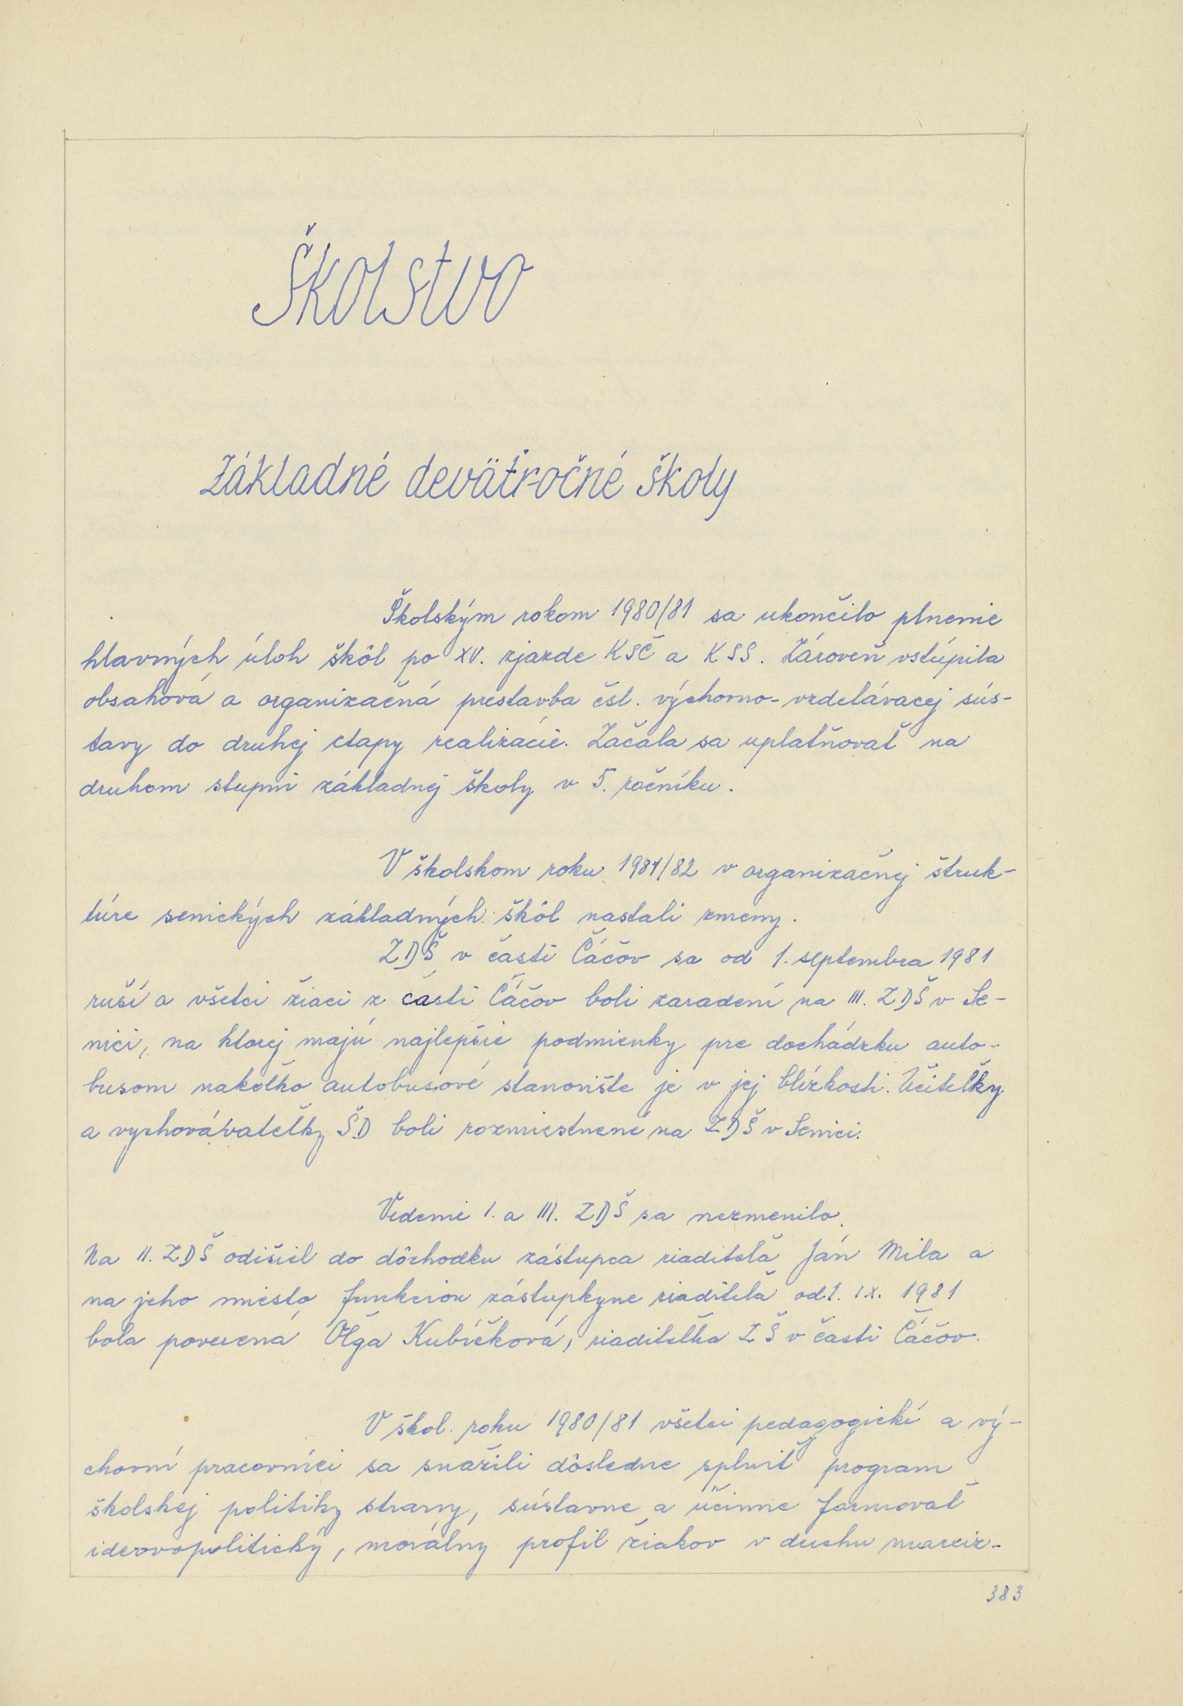 Školstvo
Základné deväťročné školy
Školským rokom 1980/81 sa ukončilo plnenie
hlavných úloh škôl po XV. zjazde KSČ a KSS. Zároveň vstúpila
obsahová a organizačná prestavba čsl. výchovno-vzdelávacej sús-
tavy do druhej etapy realizácie. Začala sa uplatňovať na
druhom stupni základnej školy v 5. ročníku.
V školskom roku 1981/82 v organizačnej štruk-
túre senických základných škôl nastali zmeny.
ZDŠ v časti Čáčov sa od 1. septembra 1981
ruší a všetci žiaci z časti Čáčov boli zaradení na III. ZDŠ v Se-
nici, na ktorej majú najlepšie podmienky pre dochádzku auto-
busom nakoľko autobusové stanovište je v jej blízkosti. Učiteľky
a vychovávateľky ŠD boli rozmiestnené na ZDŠ v Senici.
Vedenie I. a III. ZDŠ sa nezmenilo.
Na II. ZDŠ odišiel do dôchodku zástupca riaditeľa Ján Mila a
na jeho miesto funkciou zástupkyne riaditeľa od 1. IX. 1981
bola poverená Oľga Kubíčková, riaditeľka ZŠ v časti Čáčov.
V škol. roku 1980/81 všetci pedagogickí a vý-
chovní pracovníci sa snažili dôsledne splniť program
školskej politiky strany, sústavne a účinne formovať
ideovopolitický, morálny profil žiakov v duchu marxiz-
383